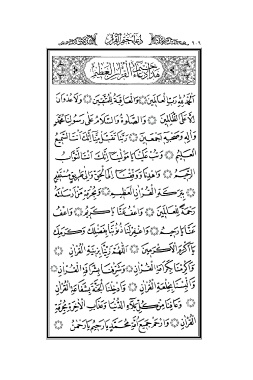 دعاء ختم القرآن
٦٠٩
هذا دعاء ختم القرآن العظيم
الحمد لله رب العالمين والعاقبة للمتقين ولا عدوان
إلا على الظالمين والصلوة والسلام على رسولنا محمد
وآله وصحبه أجمعين ربنا تقبل منا إنك أنت السميع
العليم وتب علينا يا مولينا إنك أنت التواب
الرحيم واهدنا ووفقنا إلى الحق وإلى طريق مستقيم
ببركة القرآن العظيم وبحرمة من أرسلته
رحمة للعالمين واعف عنا يا كريم واعف
عنا يا رحيم واغفر لنا ذنوبنا بفضلك وكرمك
يا أكرم الأكرمين اللهم زينا بزينة القرآن
وأكرمنا بكرامة القرآن وشرفنا بشرافة القرآن
وألبسنا بخلعة القرآن وأدخلنا الجنة بشفاعة القرآن
وعافنا من كل بلاء الدنيا وعذاب الآخرة بحرمة
القرآن وارحم جميع أمة محمد يا رحيم يا رحمن